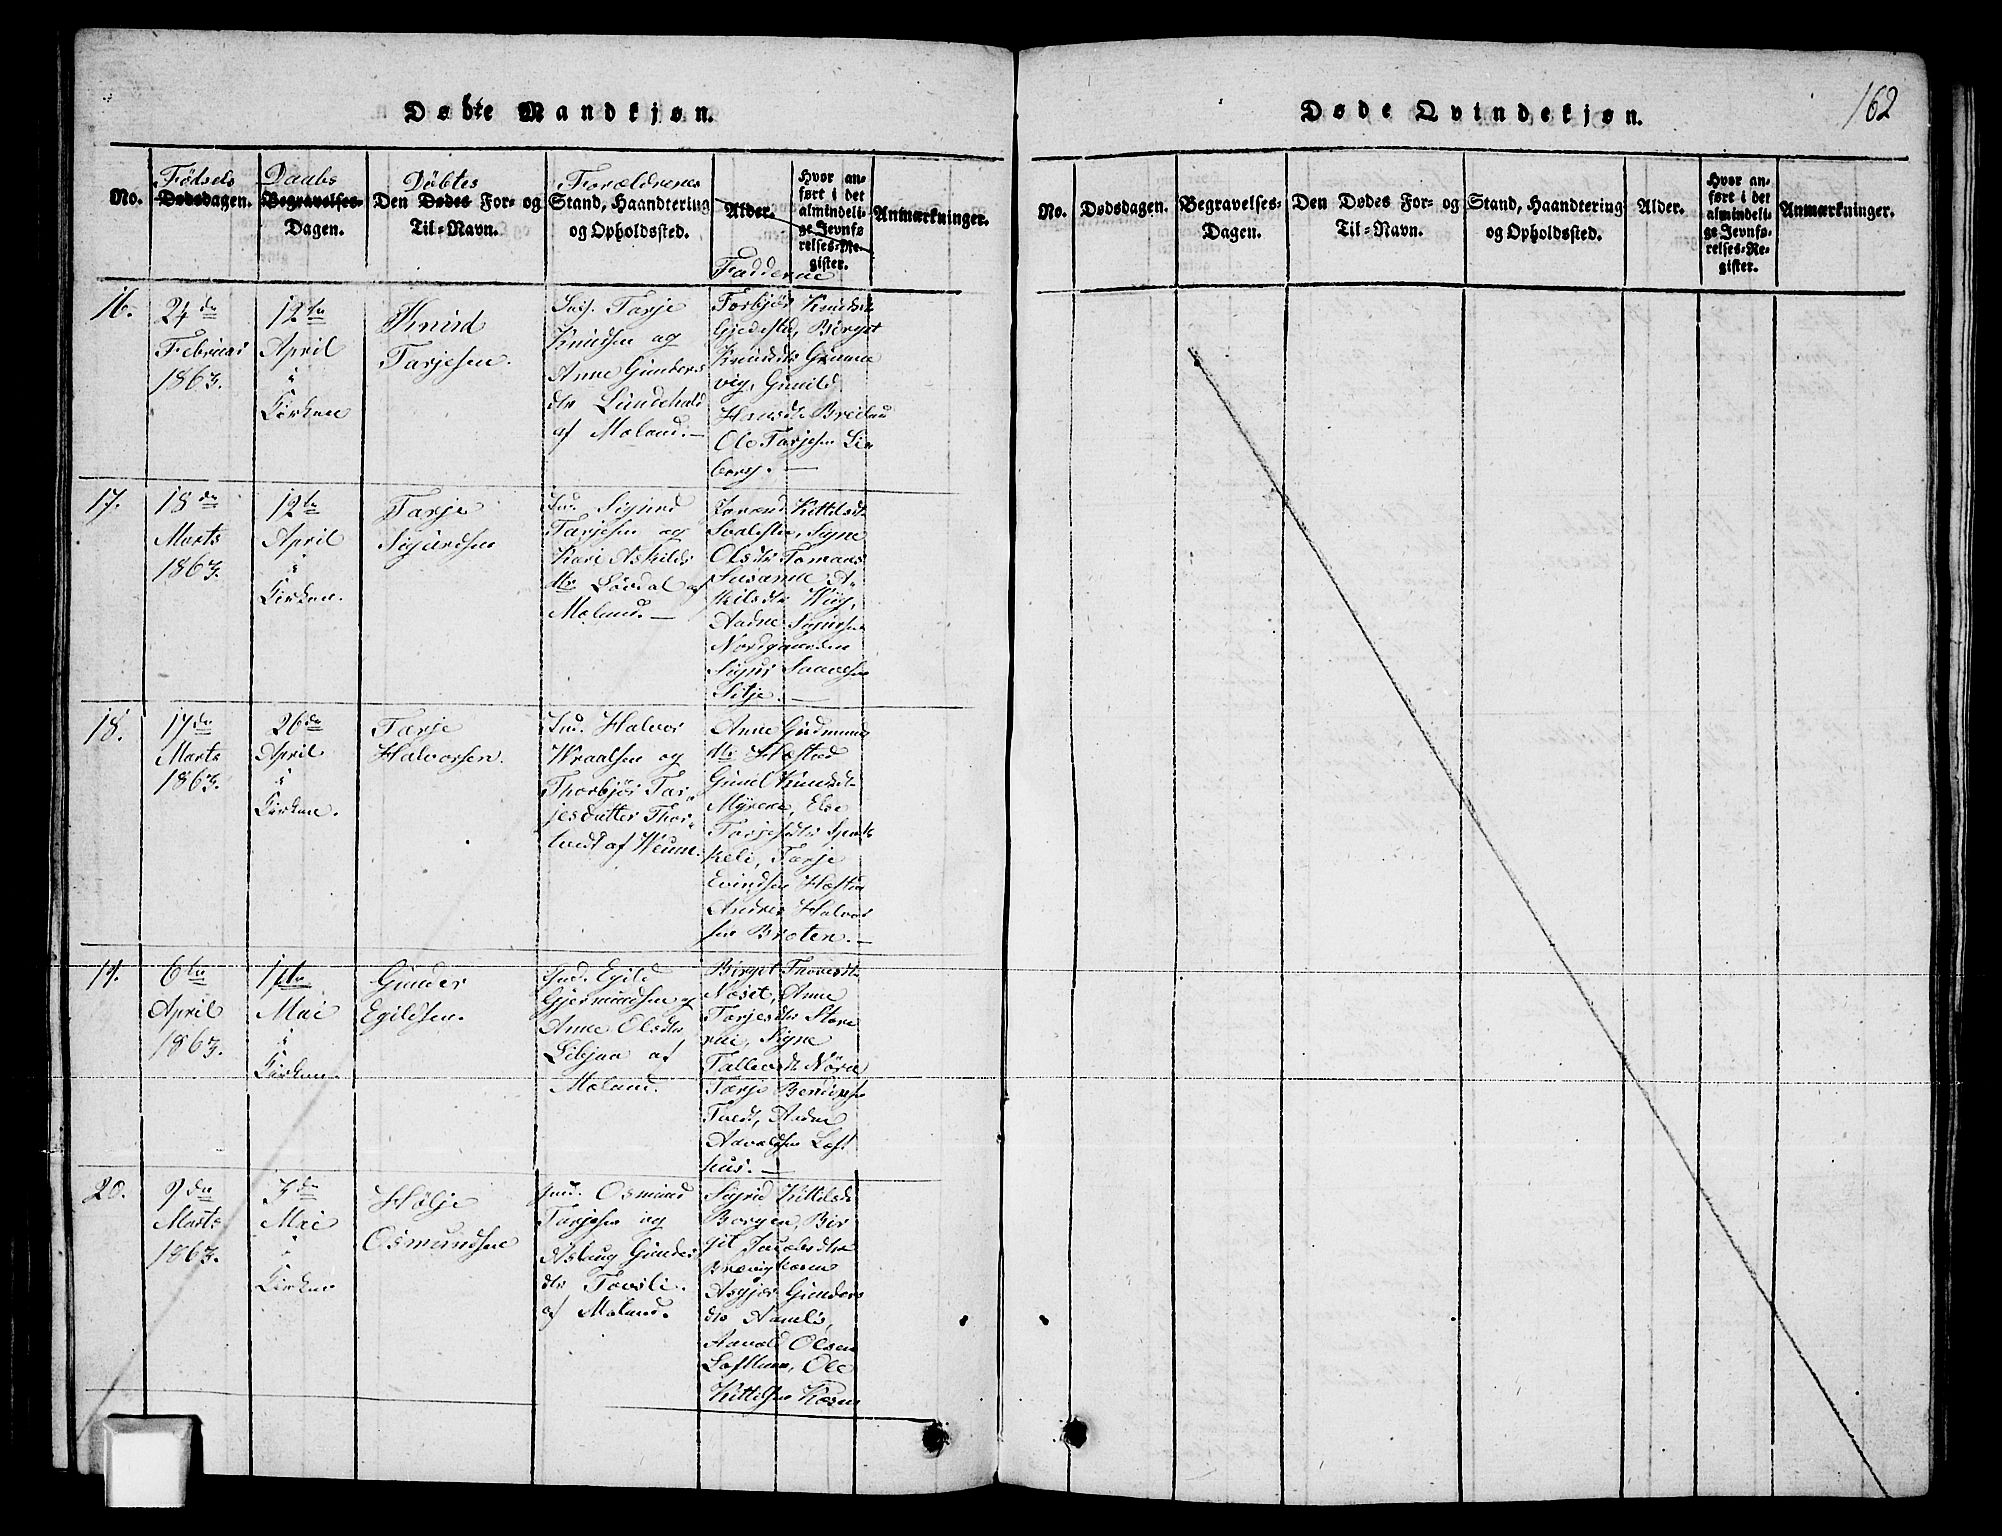 Døbte Mandkjøn.
No.
Fødsels
Dødsdagen.
Daabs
Begravelses-
Dagen.
Døbtes
Den Dødes For- og
Til-Navn.
Forældrenes
Stand, Haandtering
og Opholdssted.
Alder.
Hvor an-
ført i det
almindeli-
ge Jevnfø-
relses-Re-
gister.
Anmærkninger.
Faddere
16.
24de
Februar
1863.
12te
April
i
Kirken
Knud
Tarjesen.
Tarje
Knudsen og
Anne Gunders
dtr
af Moland.—
Torbjør Knudsdtr
Gjedestad, Birgit
Knudsdtr
vig, Gunild
Ole Tarjesen
berg.—
17.
18de
Marts
1863.
12te
April
i
Kirken.
Tarje
Sigurdsen
Ind. Sigurd
Tarjesen og
Kari Askilds
dtr Løvdal af
Moland.—
Kittilsdtr
Signe
Olsdtr
Susanne A-
skilsdtr
Aadne Sigursen
Nordgaarden
Sigur Saavesen
18.
17de
Marts
1863.
26de
April
i
Kirken.
Tarje
Halvorsen.
Ind. Halvor
Wraalsen og
Thorbjør Tar-
jesdatter Thor-
tvedt af Weum.
Anne Gudmunds
dtr Hæstad
Gunil Knudsdtr
Myrene, Else
Tarjesdtr
keli, Tarje
Evindsen Hæstad
Andres Halvor
sen Broten.—
19.
6te
April
1863.
1ste
Mai
i
Kirken
Gunder
Egildsen.
Ind. Egild
Gjermundsen og
Anne Olsdtr
Libjaa af
Moland.
Birgit
Næset, Anne
Tarjesdtr
Signe
Tallevsdtr
Tarje
Tvedt, Aadne
Aavaldsen Loft
hus.—
20.
9de
Marts
1863.
3de
Mai
i
Kirken
Hølje
Osmundsen
Ind. Osmund
Tarjesen og
Aslaug Gunders
dtr Tovsli
af Moland.
Sigrid Kittilsdtr
Borgen, Bir
git Jacobsdtr
Asgjer Gunders
dtr Aamli,
Aavald Olsen
Lofthuus, Ole
Kittilsen
Døde Qvindekjøn.
162
No.
Dødsdagen.
Begravelses-
Dagen.
Den Dødes For- og
Til-Navn.
Stand, Haandtering
og Opholdssted.
Alder.
Hvor an-
ført i det
almindeli-
ge Jevnfø-
relses-Re-
gister.
Anmærkninger.